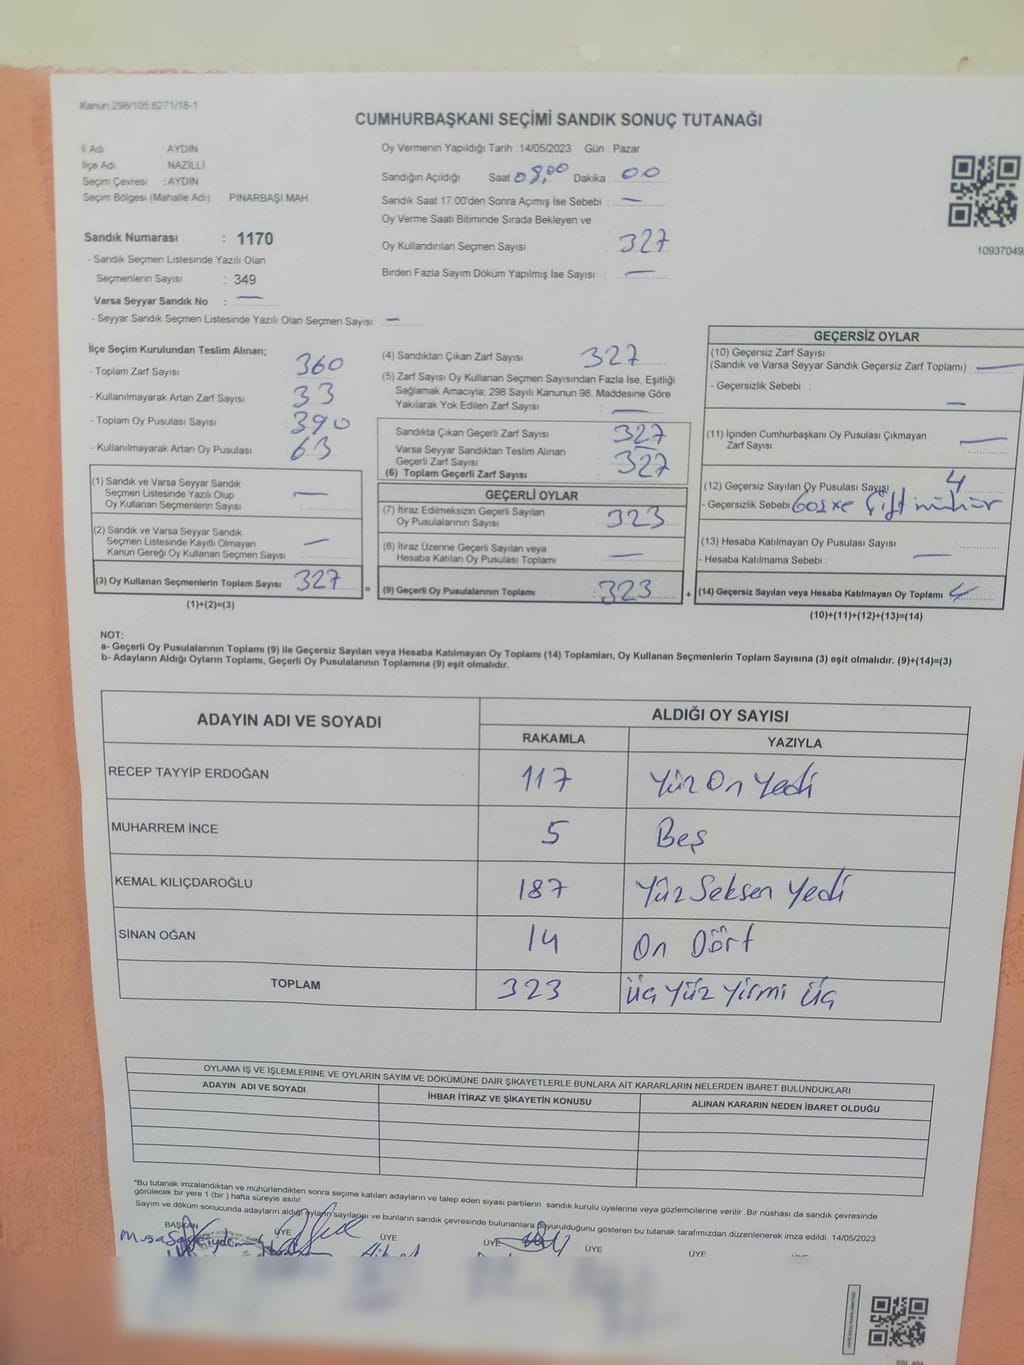 Kanun:298/105;6271/18-1
CUMHURBAŞKANI SEÇİMİ SANDIK SONUÇ TUTANAĞI
İl Adı AYDIN
İlçe Adı NAZİLLİ
Seçim Çevresi : AYDIN
Seçim Bölgesi (Mahalle Adı) PINARBAŞI MAH
Sandık Numarası : 1170
- Sandık Seçmen Listesinde Yazılı Olan
Seçmenlerin Sayısı : 349
Varsa Seyyar Sandık No : —
- Seyyar Sandık Seçmen Listesinde Yazılı Olan Seçmen Sayısı: —
Oy Vermenin Yapıldığı Tarih :14/05/2023 Gün : Pazar
Sandığın Açıldığı Saat 08,00 Dakika : 00
Sandık Saat 17:00'den Sonra Açımış İse Sebebi : —
Oy Verme Saati Bitiminde Sırada Bekleyen ve
Oy Kullandırılan Seçmen Sayısı : 327
Birden Fazla Sayım Döküm Yapılmış İse Sayısı : —
10937049
İlçe Seçim Kurulundan Teslim Alınan;
- Toplam Zarf Sayısı : 360
- Kullanılmayarak Artan Zarf Sayısı : 33
- Toplam Oy Pusulası Sayısı : 390
- Kullanılmayarak Artan Oy Pusulası : 63
(1) Sandık ve Varsa Seyyar Sandık
Seçmen Listesinde Yazılı Olup
Oy Kullanan Seçmenlerin Sayısı : —
(2) Sandık ve Varsa Seyyar Sandık
Seçmen Listesinde Kayıtlı Olmayan
Kanun Gereği Oy Kullanan Seçmen Sayısı : —
(3) Oy Kullanan Seçmenlerin Toplam Sayısı : 327
(1)+(2)=(3)
=
(4) Sandıktan Çıkan Zarf Sayısı : 327
(5) Zarf Sayısı Oy Kullanan Seçmen Sayısından Fazla İse, Eşitliği
Sağlamak Amacıyla; 298 Sayılı Kanunun 98. Maddesine Göre
Yakılarak Yok Edilen Zarf Sayısı : —
Sandıkta Çıkan Geçerli Zarf Sayısı : 327
Varsa Seyyar Sandıktan Teslim Alınan
Geçerli Zarf Sayısı
(6) Toplam Geçerli Zarf Sayısı : 327
GEÇERLİ OYLAR
(7) İtiraz Edilmeksizin Geçerli Sayılan
Oy Pusulalarının Sayısı : 323
(8) İtiraz Üzerine Geçerli Sayılan veya
Hesaba Katılan Oy Pusulası Toplamı : —
(9) Geçerli Oy Pusulalarının Toplamı : 323
+
GEÇERSİZ OYLAR
(10) Geçersiz Zarf Sayısı
(Sandık ve Varsa Seyyar Sandık Geçersiz Zarf Toplamı) : —
- Geçersizlik Sebebi : —
(11) İçinden Cumhurbaşkanı Oy Pusulası Çıkmayan
Zarf Sayısı : —
(12) Geçersiz Sayılan Oy Pusulası Sayısı : 4
- Geçersizlik Sebebi Çift mühür
(13) Hesaba Katılmayan Oy Pusulası Sayısı :
- Hesaba Katılmama Sebebi : —
(14) Geçersiz Sayılan veya Hesaba Katılmayan Oy Toplamı : 4
(10)+(11)+(12)+(13)=(14)
NOT:
a- Geçerli Oy Pusulalarının Toplamı (9) ile Geçersiz Sayılan veya Hesaba Katılmayan Oy Toplamı (14) Toplamları, Oy Kullanan Seçmenlerin Toplam Sayısına (3) eşit olmalıdır. (9)+(14)=(3)
b- Adayların Aldığı Oyların Toplamı, Geçerli Oy Pusulalarının Toplamına (9) eşit olmalıdır.
ADAYIN ADI VE SOYADI ALDIĞI OY SAYISI
RAKAMLA YAZIYLA
RECEP TAYYİP ERDOĞAN 117 Yüz On Yedi
MUHARREM İNCE 5 Beş
KEMAL KILIÇDAROĞLU 187 Yüz Seksen Yedi
SİNAN OĞAN 14 On Dört
TOPLAM 323 Üç Yüz Yirmi Üç
OYLAMA İŞ VE İŞLEMLERİNE VE OYLARIN SAYIM VE DÖKÜMÜNE DAİR ŞİKAYETLERLE BUNLARA AİT KARARLARIN NELERDEN İBARET BULUNDUKLARI
ADAYIN ADI VE SOYADI İHBAR İTİRAZ VE ŞİKAYETİN KONUSU ALINAN KARARIN NEDEN İBARET OLDUĞU
*Bu tutanak imzalandıktan ve mühürlendikten sonra seçime katılan adayların ve talep eden siyasi partilerin sandık kurulu üyelerine veya gözlemcilerine verilir. Bir nüshası da sandık çevresinde
görülecek bir yere 1 (bir ) hafta süreyle asılır.
Sayım ve döküm sonucunda adayların aldığı oyların sayıları ve bunların sandık çevresinde bulunanlara duyurulduğunu gösteren bu tutanak tarafımızdan düzenlenerek imza edildi. 14/05/2023
BAŞKAN ÜYE ÜYE ÜYE ÜYE ÜYE